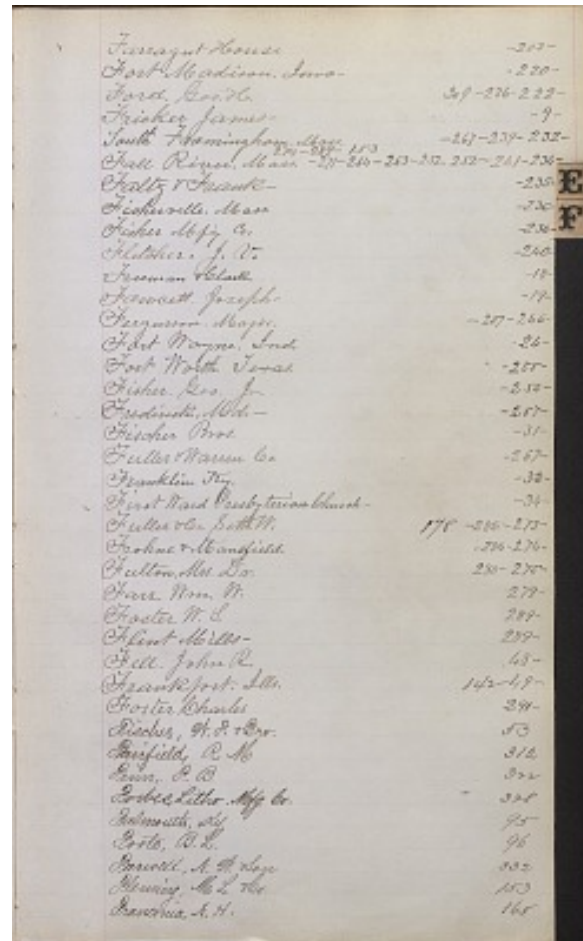 Farragut House -202-
Fort Madison. Iowa- -220-
Ford. Geo. H. 309-226-222-
Fricker James- -9-
South Framingham, Mass -267-239-232-
153
Fall River. Mass
Faltz & Frank- -235-
Fisherville. Mass -236-
Fisher Mfg Co. -236-
Fletcher. J. V. -240-
Freeman & Clark -18-
Fawcett Joseph- -19-
Ferguson. Major. -207-266-
Fort Wayne. Ind. -26-
Fort Worth Texas
Fisher Geo. J-
Frederick, Md.- -257-
Fischer Bros -31-
Fuller & Warren Co -267-
Franklin Ky. -32-
First Ward Presbyterian Church- -34-
Fuller & Co Seth W. 178
Frohne & Mansfield. -276-
Fulton, Mrs. Dr.
Farr Wm. W. 279-
Foster W. S. 289-
Flint Mills- 289-
Fell. John R. 48-
Frankfort. Ills. 142-49-
Foster Charles 291-
Fischer, W. F. & Bro. 53
Fairfield, R. M 312
P. B 322
Forbes Litho. Mfg Co. 328
Falmouth, Ky 95
Foote, B. L. 96
Farwell, A. W. & Sons 332
Fleming, M. L. & Co 153
Franconia, N. H. 165
E
F